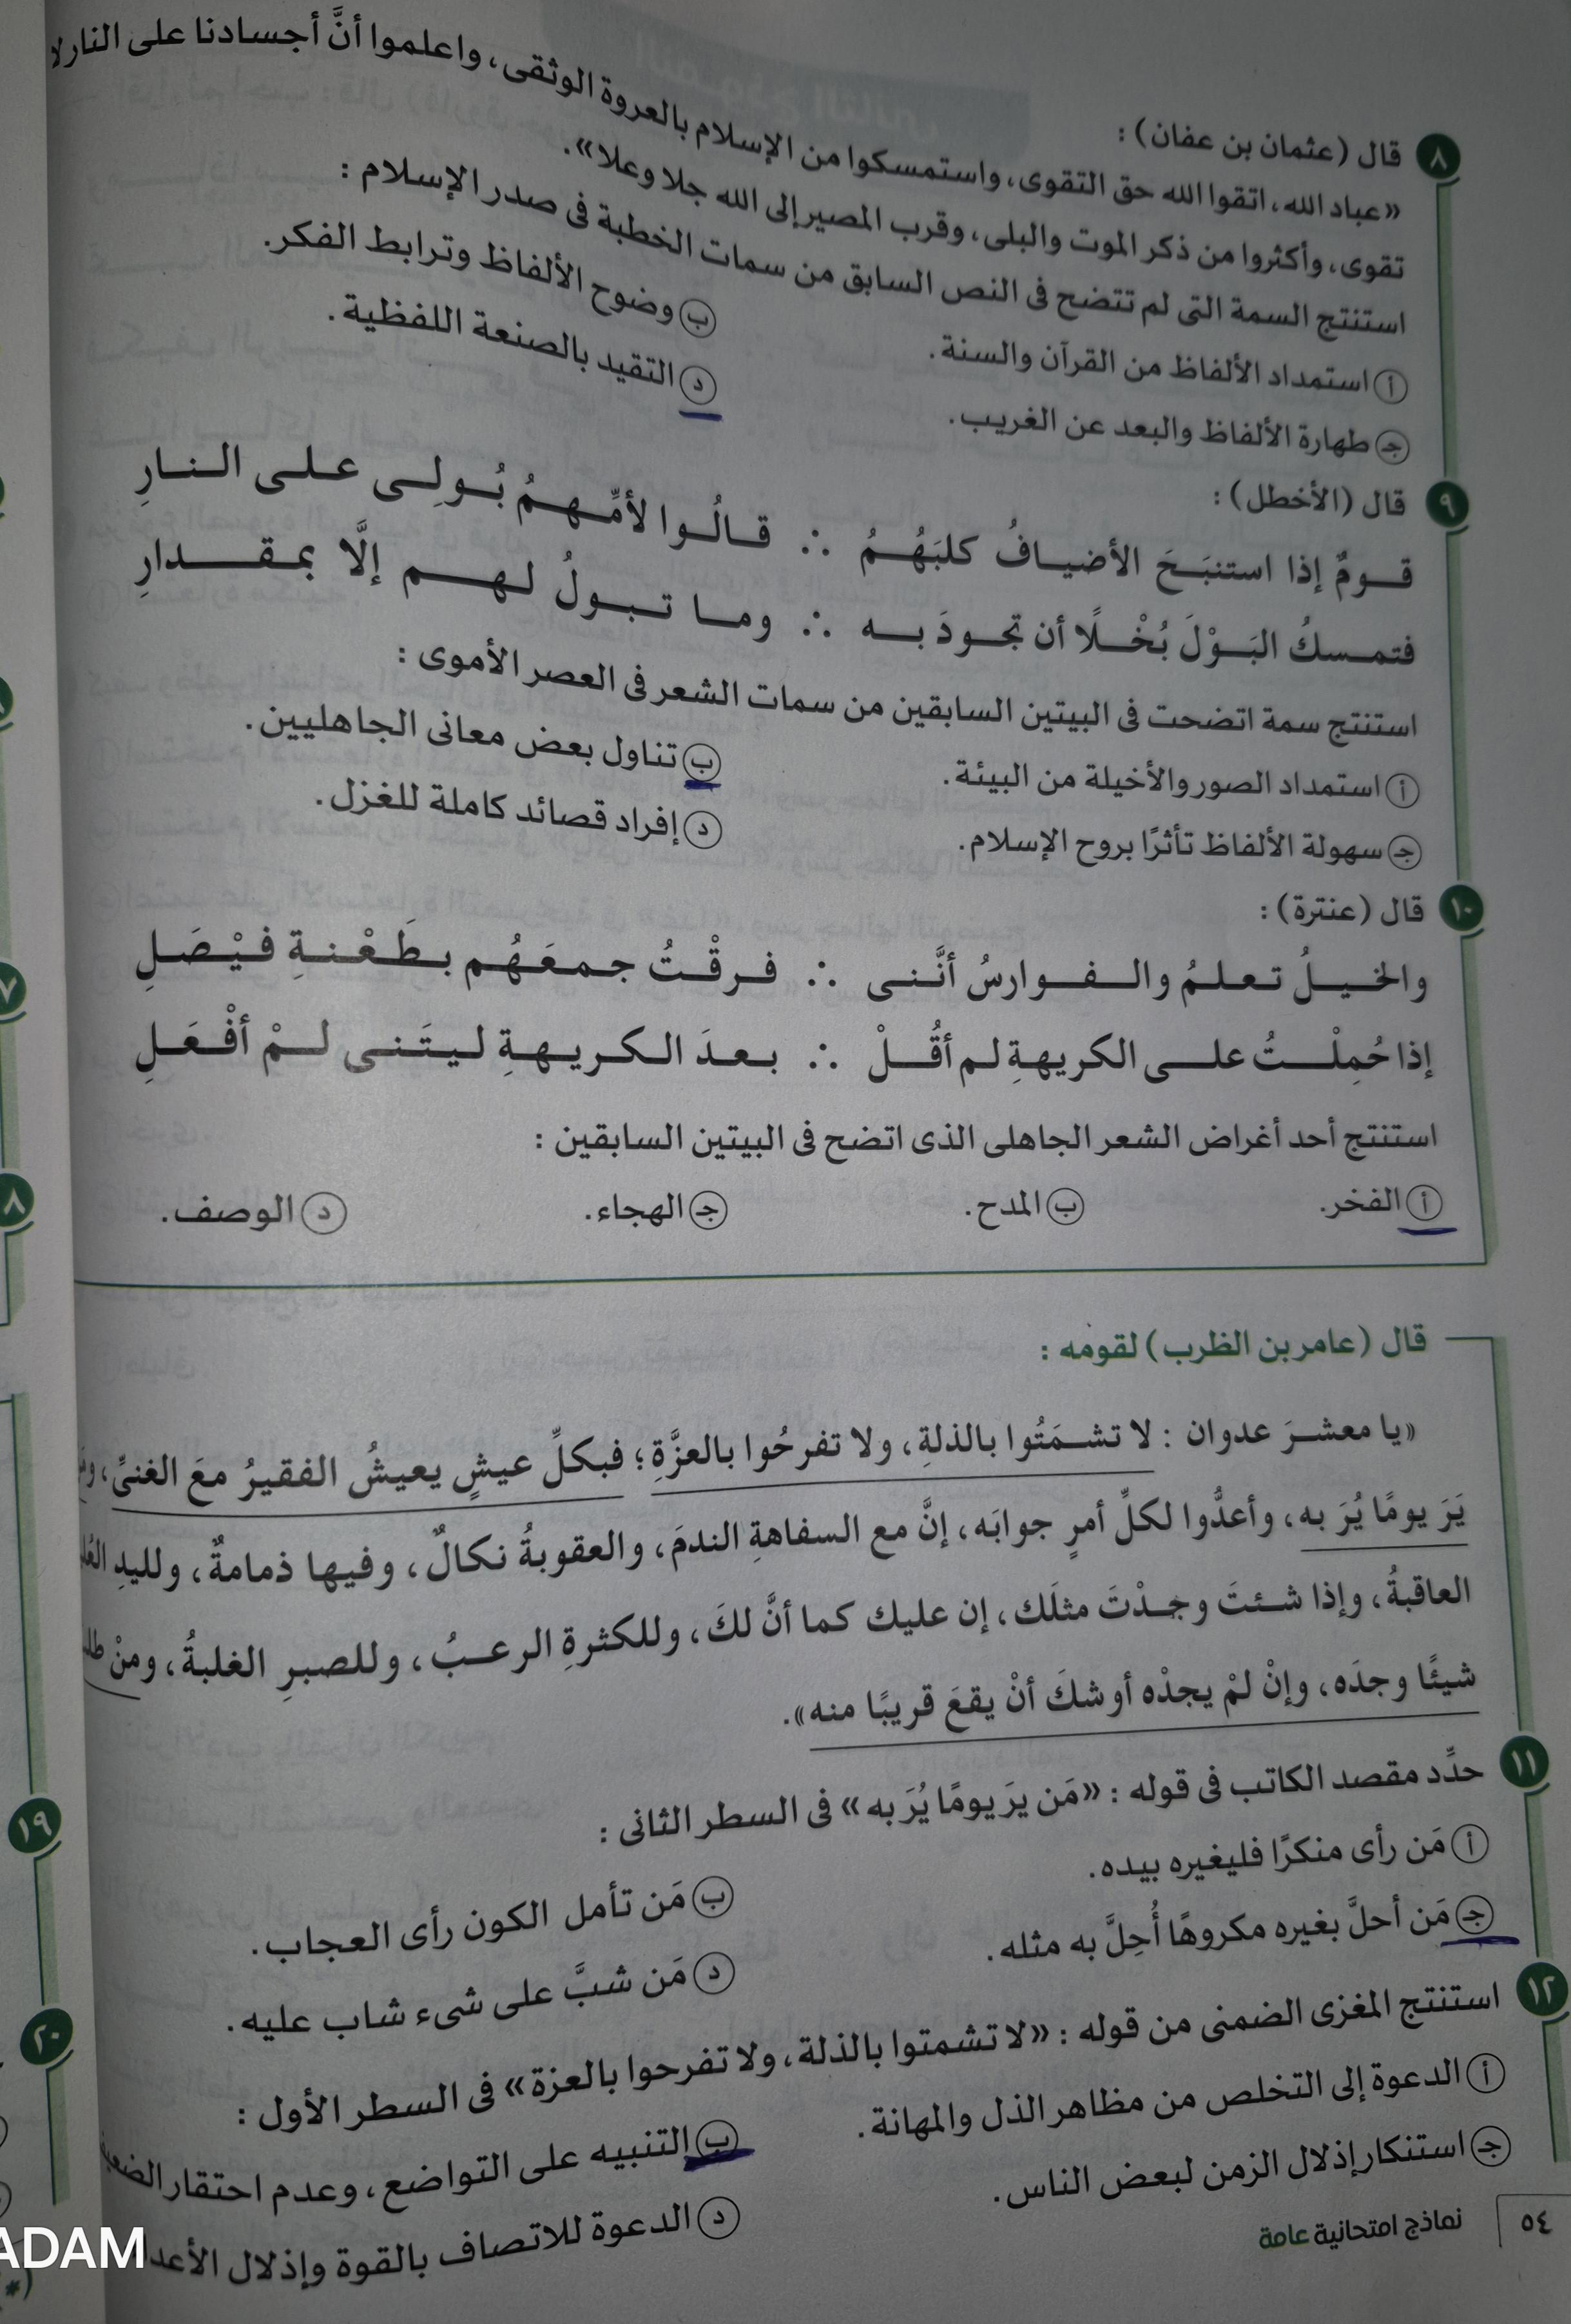 ٨ قال (عثمان بن عفان) :
«عباد الله، اتقوا الله حق التقوى، واستمسكوا من الإسلام بالعروة الوثقى، واعلموا أنَّ أجسادنا على النار لا
تقوى، وأكثروا من ذكر الموت والبلى، وقرب المصير إلى الله جلا وعلا».
استنتج السمة التى لم تتضح فى النص السابق من سمات الخطبة فى صدر الإسلام :
أ استمداد الألفاظ من القرآن والسنة.
ب وضوح الألفاظ وترابط الفكر.
جـ طهارة الألفاظ والبعد عن الغريب.
د التقيد بالصنعة اللفظية.
٩ قال (الأخطل) :
قومٌ إذا استنبَحَ الأضيافُ كلبَهُمُ ∴ قالُوا لأمِّهِمُ بُولِى على النارِ
فتمسكُ البَوْلَ بُخْلًا أن تجودَ به ∴ وما تبولُ لهم إلَّا بمقدارِ
استنتج سمة اتضحت فى البيتين السابقين من سمات الشعر فى العصر الأموى :
أ استمداد الصور والأخيلة من البيئة.
ب تناول بعض معانى الجاهليين.
جـ سهولة الألفاظ تأثرًا بروح الإسلام.
د إفراد قصائد كاملة للغزل.
١٠ قال (عنترة) :
والخيلُ تعلمُ والفوارسُ أنَّنى ∴ فرقْتُ جمعَهُم بطَعْنةِ فيْصَلِ
إذا حُمِلْتُ على الكريهةِ لم أقُلْ ∴ بعدَ الكريهةِ ليتَنى لمْ أفْعَلِ
استنتج أحد أغراض الشعر الجاهلى الذى اتضح فى البيتين السابقين :
أ الفخر. ب المدح. جـ الهجاء. د الوصف.
قال (عامر بن الظرب) لقومه :
«يا معشرَ عدوان : لا تشمَتُوا بالذلةِ، ولا تفرحُوا بالعزَّةِ؛ فبكلِّ عيشٍ يعيشُ الفقيرُ معَ الغنىِّ،
يَرَ يومًا يُرَ به، وأعدُّوا لكلِّ أمرٍ جوابَه، إنَّ مع السفاهةِ الندمَ، والعقوبةُ نكالٌ، وفيها ذمامةٌ، ولليدِ
العاقبةُ، وإذا شئتَ وجدْتَ مثلَك، إن عليك كما أنَّ لكَ، وللكثرةِ الرعبُ، وللصبرِ الغلبةُ، ومنْ
شيئًا وجدَه، وإنْ لمْ يجدْه أوشكَ أنْ يقعَ قريبًا منه».
١١ حدِّد مقصد الكاتب فى قوله : «مَن يرَ يومًا يُرَ به» فى السطر الثانى :
أ مَن رأى منكرًا فليغيره بيده.
ب مَن تأمل الكون رأى العجاب.
جـ مَن أحلَّ بغيره مكروهًا أُحِلَّ به مثله.
د مَن شبَّ على شىء شاب عليه.
١٢ استنتج المغزى الضمنى من قوله : «لا تشمتوا بالذلة، ولا تفرحوا بالعزة» فى السطر الأول :
أ الدعوة إلى التخلص من مظاهر الذل والمهانة.
ب التنبيه على التواضع، وعدم احتقار
جـ استنكار إذلال الزمن لبعض الناس.
د الدعوة للاتصاف بالقوة وإذلال
٥٤ نماذج امتحانية عامة
٧
٨
١٩
٢٠
ADAM